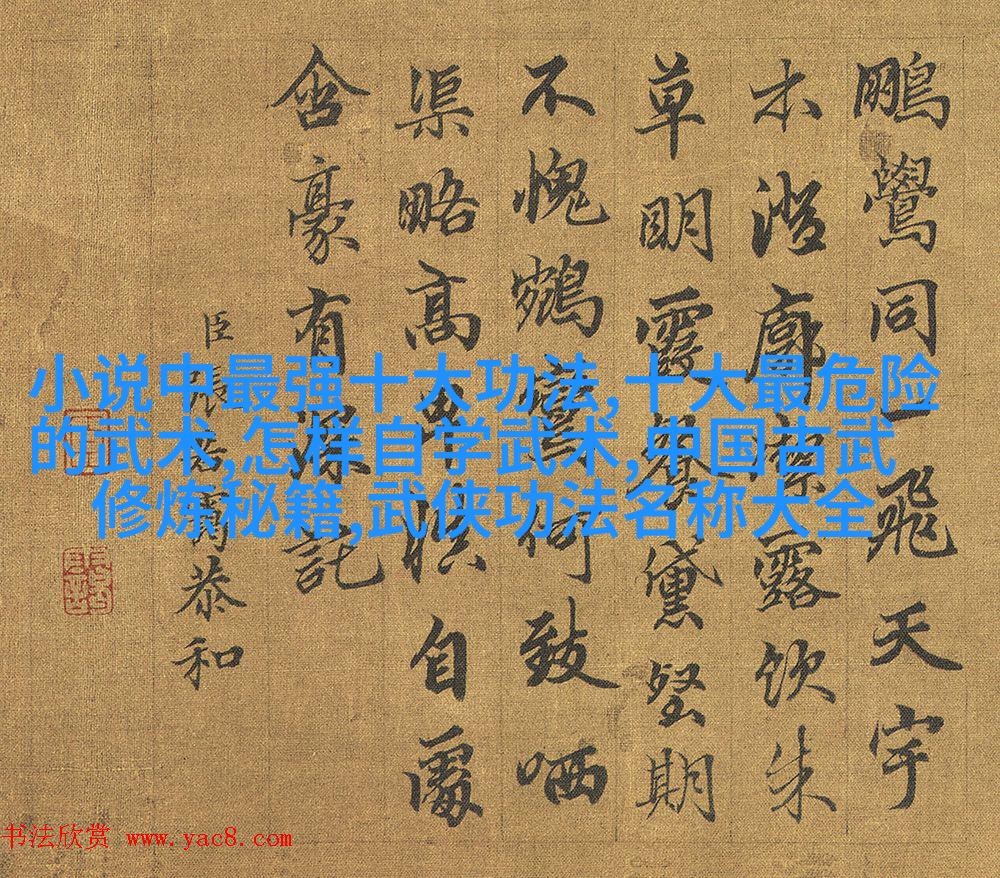 鵬鷽同一飛天宇
木澄廓露飲朱
草明霞黛堅期
不愧鵷鸞何致哂
渠略高卑愜自
含豪有深託
臣張恭和
小说中最强十大功法,十大最危险
的武术,怎样自学武术,中国古武
修炼秘籍,武侠功法名称大全
书法欣赏 www.yac8.com